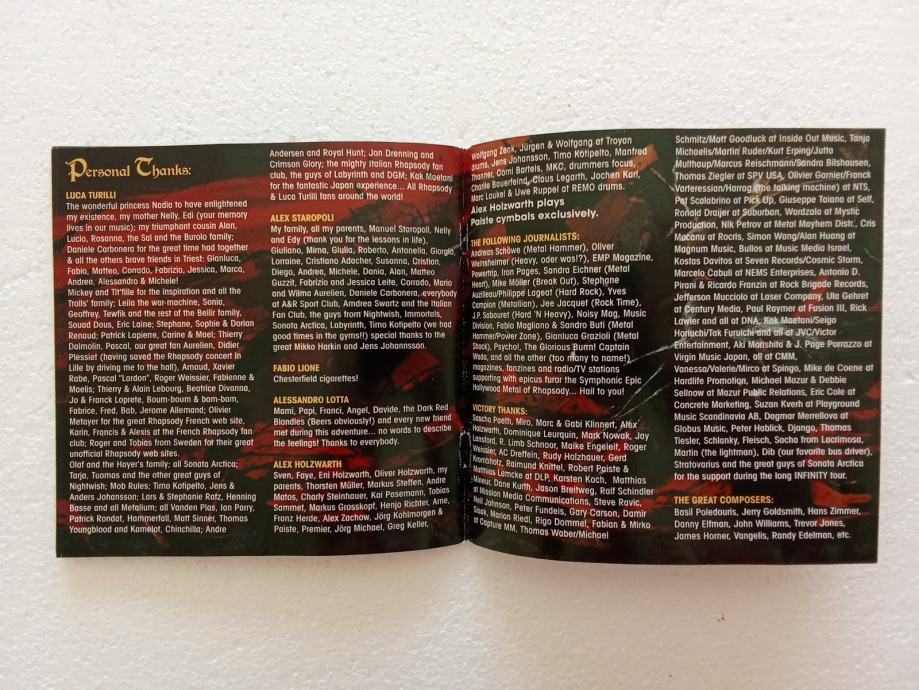 Personal Thanks:
LUCA TURILLI
The wonderful princess Nadia to have enlightened
my existence, my mother Nelly, Edi (your memory
lives in our music); my triumphant cousin Alan,
Lucia, Rosanna, the Sal and the Burolo family;
Daniele Carbonera for the great time had together
& all the others brave friends in Triest: Gianluca,
Fabio, Matteo, Corrado, Fabrizio, Jessica, Marco,
Andrea, Alessandro & Michele!
Mickey and Tit'fille for the inspiration and all the
Trolls' family; Leila the war-machine, Sonia,
Geoffrey, Tewfik and the rest of the Bellir family,
Souad Dous, Eric Laine; Stephane, Sophie & Dorian
Renaud; Patrick Lapierre, Carine & Mael; Thierry
Dalmolin, Pascal, our great fan Aurelien, Didier
Plessiet (having saved the Rhapsody concert in
Lille by driving me to the hall), Arnaud, Xavier
Rabe, Pascal "Lardon", Roger Weissier, Fabienne &
Maelis; Thierry & Alain Lebourg, Beatrice Divanna,
Jo & Franck Loprete, Boum-boum & bam-bam,
Fabrice, Fred, Bab, Jerome Allemand; Olivier
Metayer for the great Rhapsody French web site,
Karin, Francis & Alexis at the French Rhapsody fan
club; Roger and Tobias from Sweden for their great
unofficial Rhapsody web sites.
Olaf and the Hayer's family; all Sonata Arctica;
Tarja, Tuomas and the other great guys of
Nightwish; Mob Rules; Timo Kotipelto, Jens &
Anders Johansson; Lars & Stephanie Ratz, Henning
Basse and all Metalium; all Vanden Plas, Ian Parry,
Patrick Rondat, Hammerfall, Matt Sinner, Thomas
Youngblood and Kamelot, Chinchilla; Andre
Andersen and Royal Hunt; Jon Drenning and
Crimson Glory; the mighty Italian Rhapsody fan
club, the guys of Labyrinth and DGM; Kak Maetani
for the fantastic Japan experience... All Rhapsody
& Luca Turilli fans around the world!
ALEX STAROPOLI
My family, all my parents, Manuel Staropoli, Nelly
and Edy (thank you for the lessons in life),
Giuliano, Mirna, Giulio, Roberto, Antonello, Giorgio,
Lorraine, Cristiano Adacher, Susanna, Cristian,
Diego, Andrea, Michele, Dania, Alan, Matteo
Guzzit, Fabrizio and Jessica Leite, Corrado, Mario
and Wilma Aurelien, Daniele Carbonera, everybody
at A&R Sport Club, Amdrea Swartz and the Italian
Fan Club, the guys from Nightwish, Immortals,
Sonata Arctica, Labyrinth, Timo Kotipelto (we had
good times in the gyms!!) special thanks to the
great Mikko Harkin and Jens Johannsson.
FABIO LIONE
Chesterfield cigarettes!
ALESSANDRO LOTTA
Mami, Papi, Franci, Angel, Davide, the Dark Red
Blondies (Beers obviously!) and every new friend
met during this adventure... no words to describe
the feelings! Thanks to everybody.
ALEX HOLZWARTH
Sven, Faye, Eni Holzwarth, Oliver Holzwarth, my
parents, Thorsten Müller, Markus Steffen, Andre
Matos, Charly Steinhauer, Kai Pasemann, Tobias
Sammet, Markus Grosskopf, Henjo Richter, Arne,
Franz Herde, Alex Zachow, Jörg Kohlmorgen &
Paiste, Premier, Jörg Michael, Greg Keller,
Wolfgang Zenk, Jürgen & Wolfgang at Troyan
drums, Jens Johansson, Timo Kotipelto, Manfred
Thanner, Corni Bartels, MKC, drummers focus,
Charlie Bauerfeind, Claus Legarth, Jochen Karl,
Marc Laukel & Uwe Ruppel at REMO drums.
Alex Holzwarth plays
Paiste cymbals exclusively.
THE FOLLOWING JOURNALISTS:
Andreas Schöwe (Metal Hammer), Oliver
Weinsheimer (Heavy, oder was!?), EMP Magazine,
Powertrip, Iron Pages, Sandra Eichner (Metal
Heart), Mike Möller (Break Out), Stephane
Auzilleau/Philippe Lageat (Hard Rock), Yves
Campion (Metallian), Jee Jacquet (Rock Time),
J.P. Sabouret (Hard 'N Heavy), Noisy Mag, Music
Division, Fabio Magliano & Sandro Buti (Metal
Hammer/Power Zone), Gianluca Grazioli (Metal
Shock), Psychol, The Glorious Burn! Captain
Wada, and all the other (too many to name!)
magazines, fanzines and radio/TV stations
supporting with epicus furor the Symphonic Epic
Hollywood Metal of Rhapsody... Hail to you!
VICTORY THANKS:
Sascha Paeth, Miro, Marc & Gabi Klinnert, Alex
Holzwarth, Dominique Leurquin, Mark Nowak, Jay
Lansford, R. Limb Schnoor, Maike Engeleit, Roger
Weissier, AC Dreftein, Rudy Holzhauer, Gerd
Krombholz, Raimund Knittel, Robert Paiste &
Matthias Lemcke at DLP, Karsten Koch, Matthias
Mineur, Dane Kurth, Jason Breitweg, Ralf Schindler
at Mission Media Communications, Steve Ravic,
Neil Johnson, Peter Fundeis, Gary Carson, Damir
Sisak, Marion Riedl, Rigo Dommel, Fabian & Mirko
at Capture MM, Thomas Waber/Michael
Schmitz/Matt Goodluck at Inside Out Music, Tanja
Michaelis/Martin Ruder/Kurt Erping/Jutta
Multhaup/Marcus Reischmann/Sandra Bilshausen,
Thomas Ziegler at SPV USA, Olivier Garnier/Franck
Varteression/Harrag (the talking machine) at NTS,
Pat Scalabrino at Pick Up, Giuseppe Taiana at Self,
Ronald Draijer at Suburban, Wardzala at Mystic
Production, Nik Petrov at Metal Mayhem Distr., Cris
Macanu at Rocris, Simon Wang/Alan Huang at
Magnum Music, Bullos at Music Media Israel,
Kostas Davitos at Seven Records/Cosmic Storm,
Marcelo Cabuli at NEMS Enterprises, Antonio D.
Pirani & Ricardo Franzin at Rock Brigade Records,
Jefferson Mucciolo at Laser Company, Ula Gehret
at Century Media, Paul Raymer at Fusion III, Rick
Lawler and all at DNA, Kak Maetani/Seigo
Horiuchi/Tak Furuichi and all at JVC/Victor
Entertainment, Aki Morishita & J. Page Porrazzo at
Virgin Music Japan, all at CMM,
Vanessa/Valerie/Mirco at Spingo, Mike de Coene at
Hardlife Promotion, Michael Mazur & Debbie
Sellnow at Mazur Public Relations, Eric Cole at
Concrete Marketing, Suzan Kverh at Playground
Music Scandinavia AB, Dagmar Merrellova at
Globus Music, Peter Hablick, Django, Thomas
Tiesler, Schlanky, Fleisch, Sacha from Lacrimosa,
Martin (the lightman), Dib (our favorite bus driver),
Stratovarius and the great guys of Sonata Arctica
for the support during the long INFINITY tour.
THE GREAT COMPOSERS:
Basil Poledouris, Jerry Goldsmith, Hans Zimmer,
Danny Elfman, John Williams, Trevor Jones,
James Horner, Vangelis, Randy Edelman, etc.